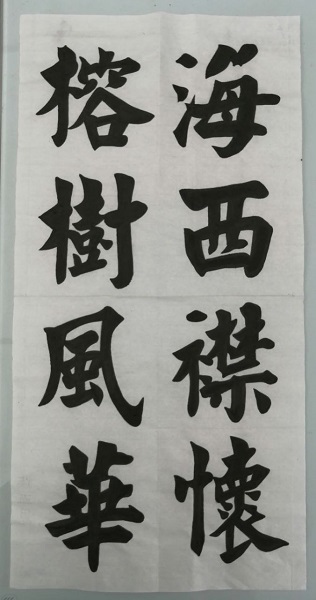 海西襟懷
榕樹風華